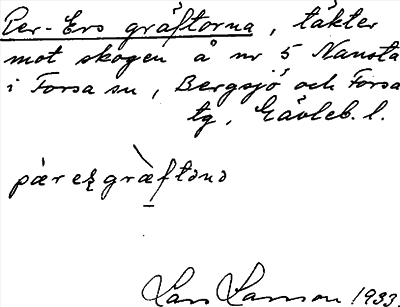 Per-Ers gräftorna, täkter
mot skogen å nr 5 Nansta
i Forsa sn, Bergsjö och Forsa
tg, Gävleb. l.
pær eʂ græ̀ftɔnɔ
Lars Larsson 1933.